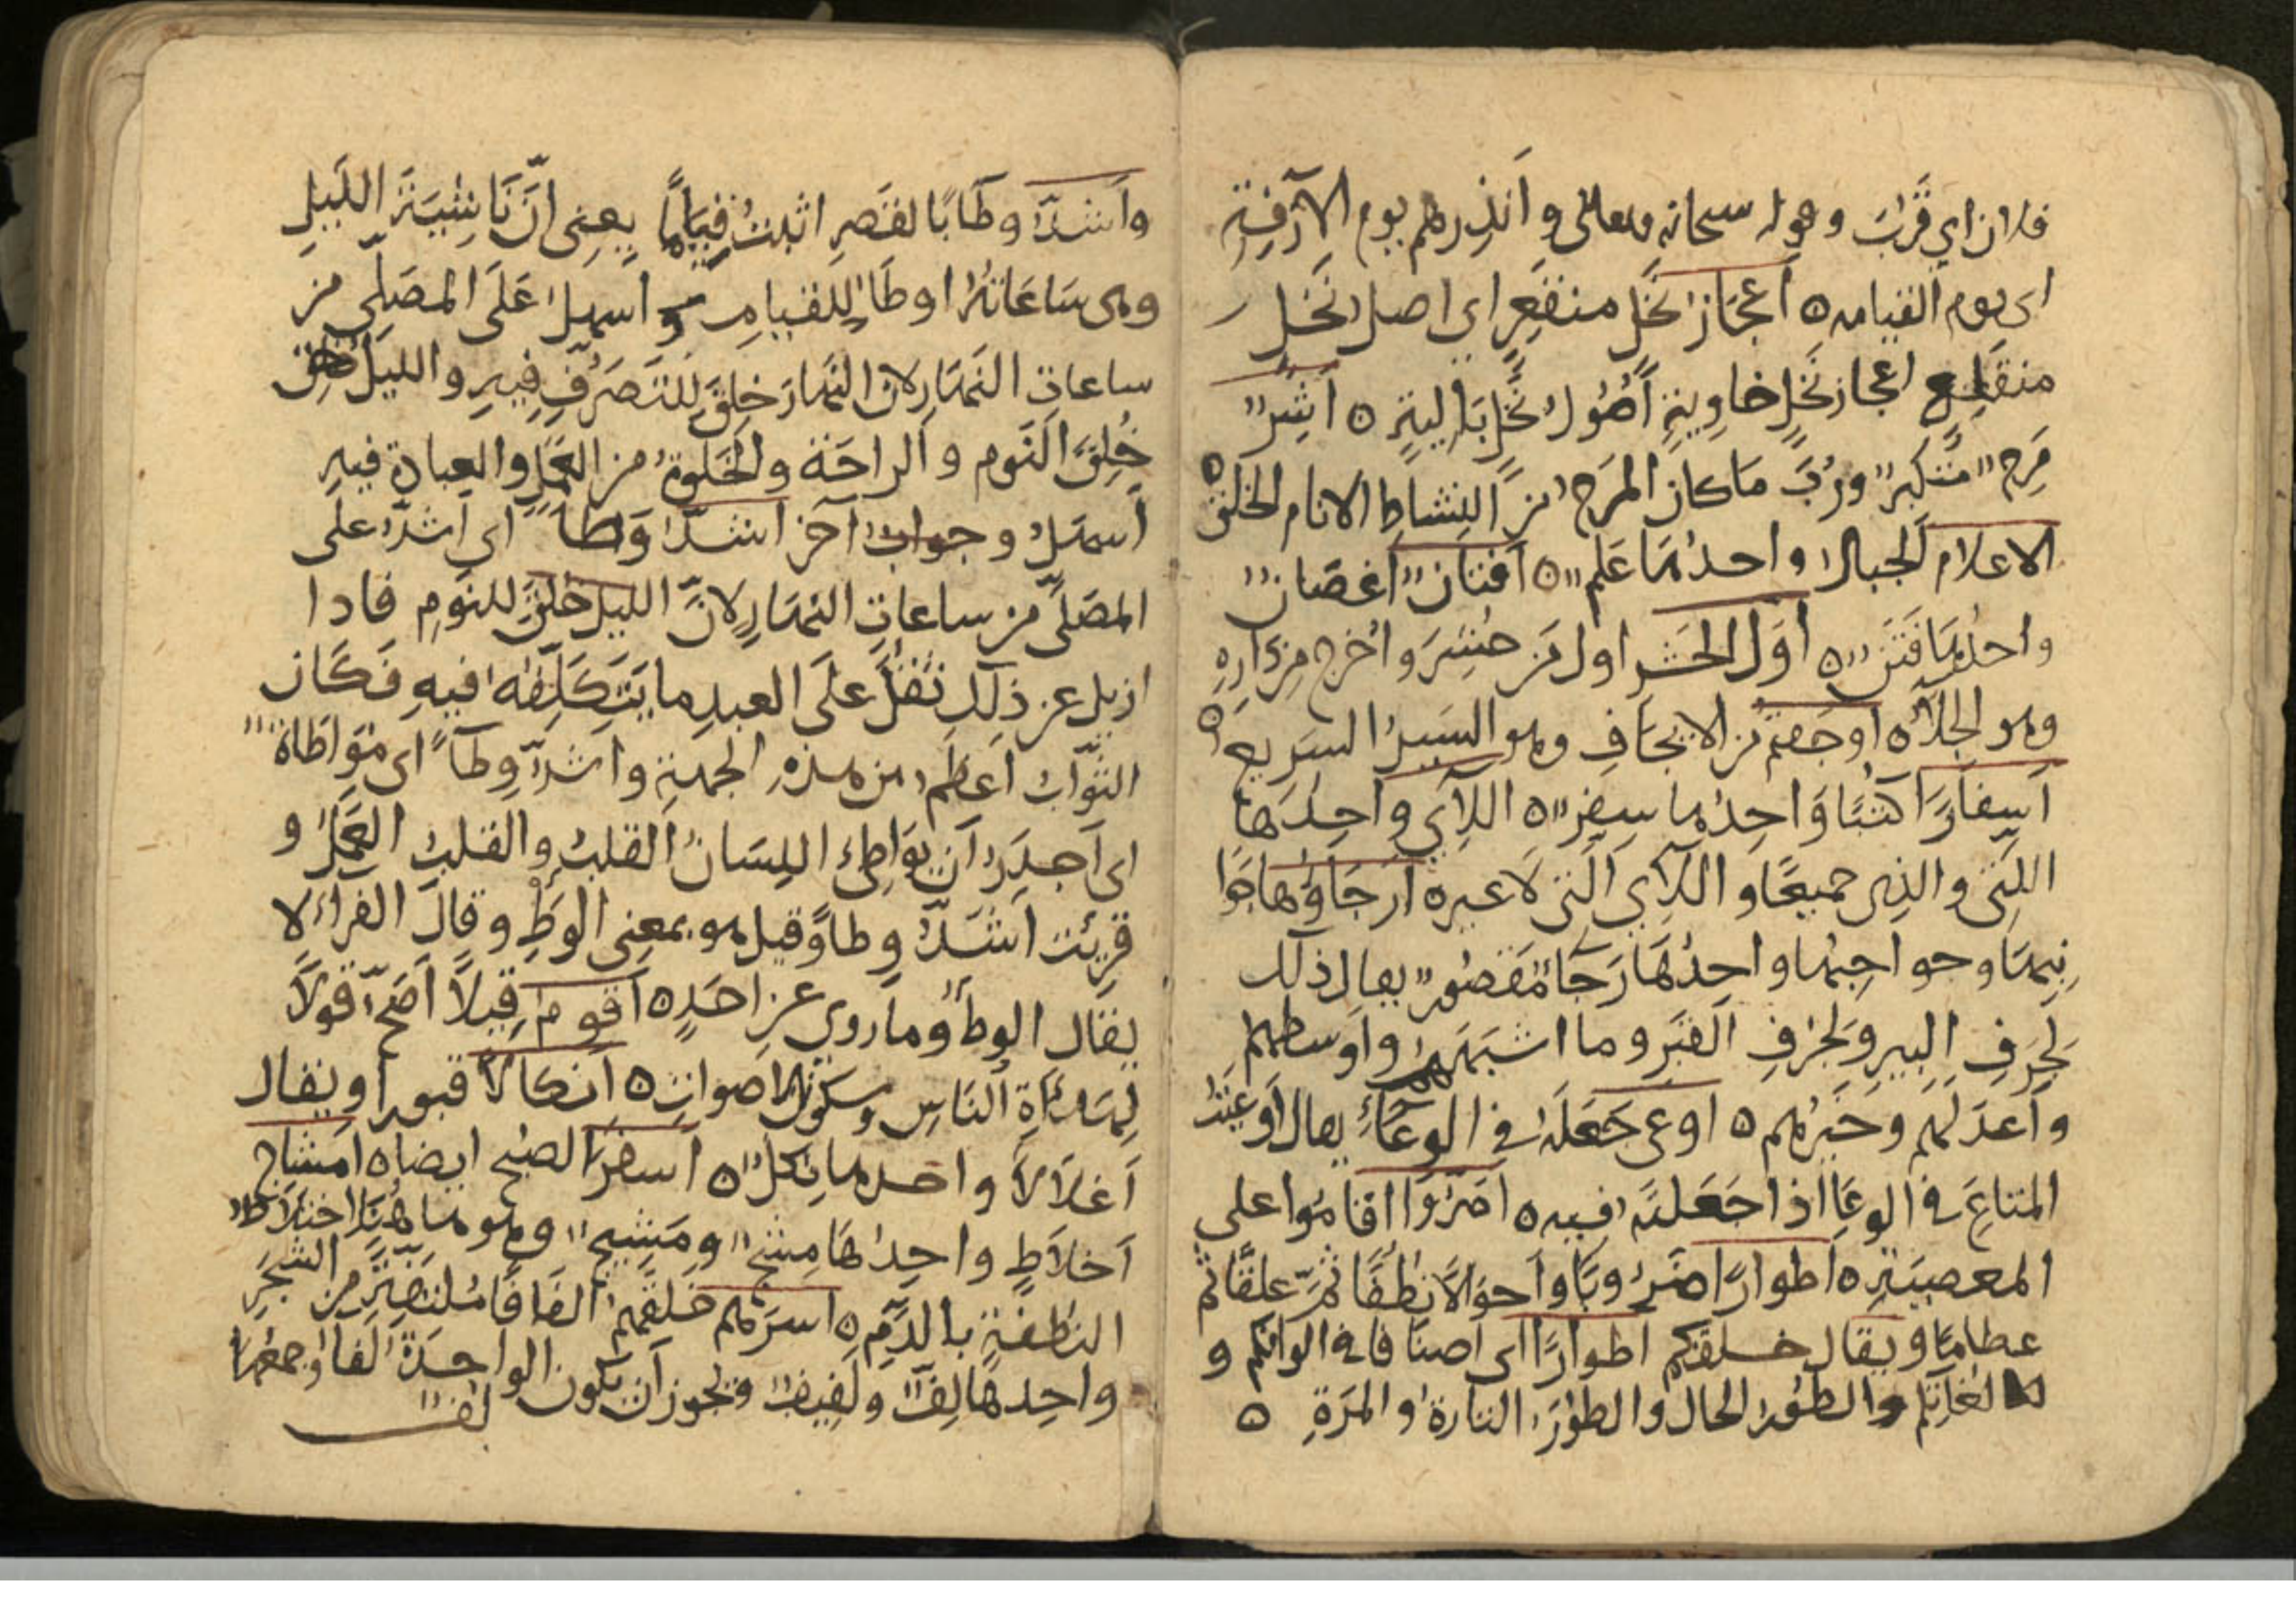 فلان اي قَرُبَ وقوله سبحانه وتعالى وَأَنْذِرهم يوم الآزِفةِ
اى يوم القيامه ه أَعْجَازُ نَخْلٍ منقَعِرٍ اى اصل نَخل
منقَلِعٍ اعجاز نَخْلٍ خاوِيةٍ أُصُولُ نَخْلٍ بَالِيةٍ ه اَشِرٌ
مَرِحٌ مُتَكبِرٌ ورُبَّ مَا كان المَرَح من النشاطِ الانام الخلق ه
الاعلام الجبال واحدها عَلَمٌ ه أفنان اغصَان
واحدُهَا فَنَنٌ ه اوّل الحَشر اول من حُشِرَ واُخرج من دَارِهِ
وهو الجَلآءُ ه أوجَفتم من الايجَافِ وهو السَيرُ السَريع ه
أسفارًا كتُبًا وَاحِدُها سِفرٌ ه اللآي واحِدَها
اللتِى والذى جميعًا و اللآي التى لا غير ه ارجَاؤُهَا جَوَا
نِبهَا وحواجِبُها واحِدُهَا رَجًا مَقصُورٌ يقال ذلك
لحِرَفِ البيرِ ولحرفِ القَبرِ وما اشبَههُ واوسطهم
واَعدَلهم وخَيْرُهم ه اوعى جَعَلَهُ في الوعَاءِ يقال أوعَيْتُ
المتاعَ في الوِعَا اذا جَعَلتَه فيه ه اَصَرُّوا اقامُوا على
المعصيَةِ ه اطوارًا ضُرُوبًا واَحوَالًا نُطَفًا ثُمَّ علقًا ثم
عظامًا ويقال خلقكم اطوارًا اى أصنافا في الوانكم و
لغاتكم والطَّوْرُ الحال والطَوْرُ التارةُ والمرّةِ ه
وأَشدّ وطَابًا لقَصرِ اثبتُ قِيَامًا يعنى أنَّ نَاشِيَةَ اللَيلِ
وهى سَاعَاتُهُ اوطَا للقيامِ و اسهلُ عَلَى المصَلّي من
ساعاتِ النَهَارِ لان النهارَ خلِقَ للتَصَرُّفِ فِيهِ والليلُ
خُلِقَ النَوم والراحَة والخَلوةُ من العَمَلِ والعبادة فيه
أسهَلُ وجوابٌ آخر اشدّ وَطأً اى اَشدّ على
المصَلّى من ساعاتِ النهَارِ لانّ الليل خلِقَ للنومِ فاذا
ازيل عن ذلِكَ ثَقُلَ على العبدِ ما يَتَكَلّفُه فيهِ فكَان
الثّوابُ اَعظم من هذهِ الجهةِ واشدّ وِطآءً اى مُوَاطَاةً
اى أَجدَرُ أن يوَاطِئ اللِسَانُ القلبَ والقلبُ العَمَلَ و
قرِئت اَشَدّ وِطاءً وقيل هو بمعنى الوطْءِ وقالَ الفراء لا
يقال الوِطْءُ وما روى عن احَدٍ ه اَقومُ قِيلًا اَصَحّ قولًا
لِهَدْأةِ النَاسِ وسكون الاصواتِ ه اَنكالًا قبورا ويقال
اَغلَالًا واحدها نِكلٌ ه أسفَرَ الصبح ايضاه امشاجٍ
اَخلاطٍ واحِدُهَا مِشجٌ ومَشِيجٌ وهو هَاهُنَا اختلاط
النُطفةِ بالدَّمِ ه اسرَهم خلقَهم الفَافًا مُلتَفَّةً مِن الشجَرِ
واحِدهَا لِفٌّ ولَفِيفٌ ويجوز أن تكون الواحِدَةُ لَفّاء وجمعُها
لُفٌّ